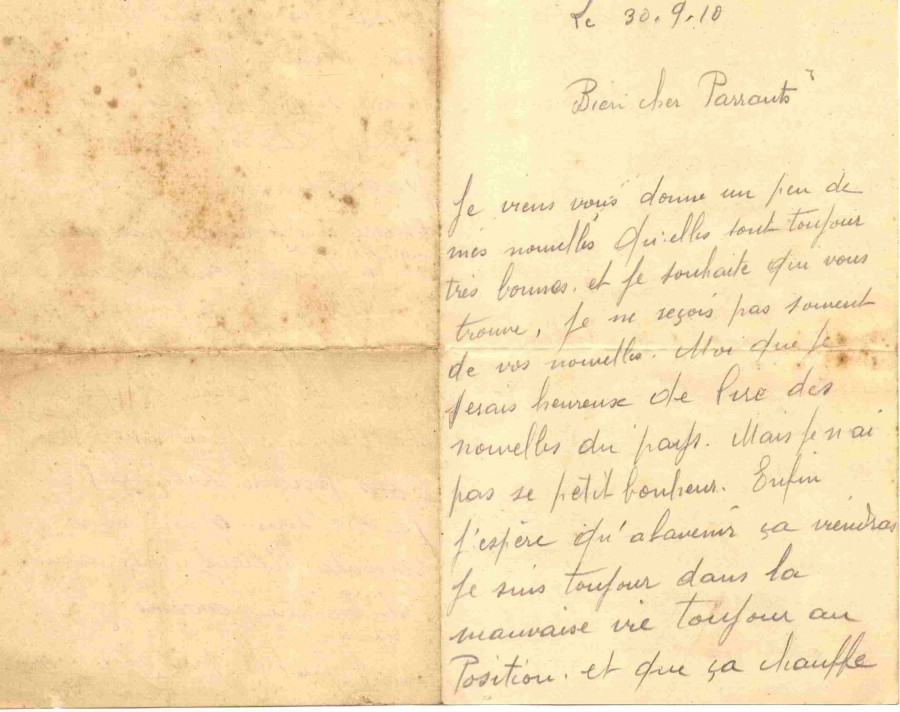 Le 30.9.18
Bien cher Parrants
Je viens vous donne un peu de
mes nouvelles Qu'elles sont toujour
très bonnes. et Je souhaite qui vous
trouve, Je ne reçois pas souvent
de vos nouvelles. Moi que Je
serais heureuse de lire des
nouvelles du pays. Mais Je n ai
pas se petit bonheur. Enfin
J'espère qu'alavenir ça viendras
Je suis toujour dans la
mauvaise vie toujour au
Position. et que ça chauffe